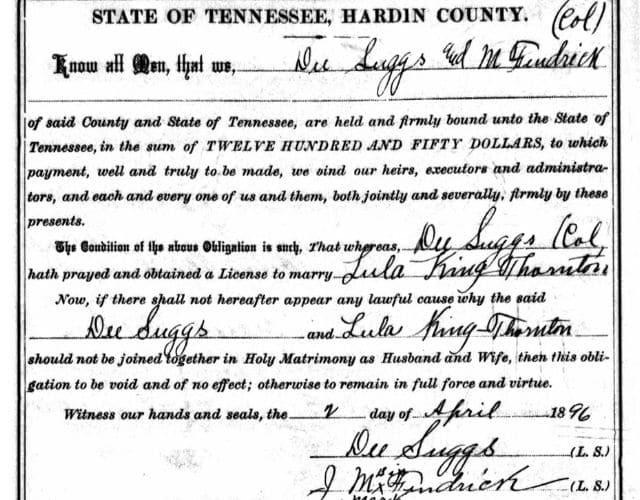 STATE OF TENNESSEE, HARDIN COUNTY. (Col)
Know all Men, that we, Dee Suggs and M Fendrick
of said County and State of Tennessee, are held and firmly bound unto the State of
Tennessee, in the sum of TWELVE HUNDRED AND FIFTY DOLLARS, to which
payment, well and truly to be made, we oind our heirs, executors and administra-
tors, and each and every one of us and them, both jointly and severally, firmly by these
presents.
The Condition of the above Obligation is such, That whereas, Dee Suggs (Col
hath prayed and obtained a License to marry Lula King Thornton
Now, if there shall not hereafter appear any lawful cause why the said
Dee Suggs and Lula King-Thornton
should not be joined together in Holy Matrimony as Husband and Wife, then this obli-
gation to be void and of no effect; otherwise to remain in full force and virtue.
Witness our hands and seals, the 2 day of April 1896
Dee Suggs (L. S.)
J M Fendrick (L. S.)